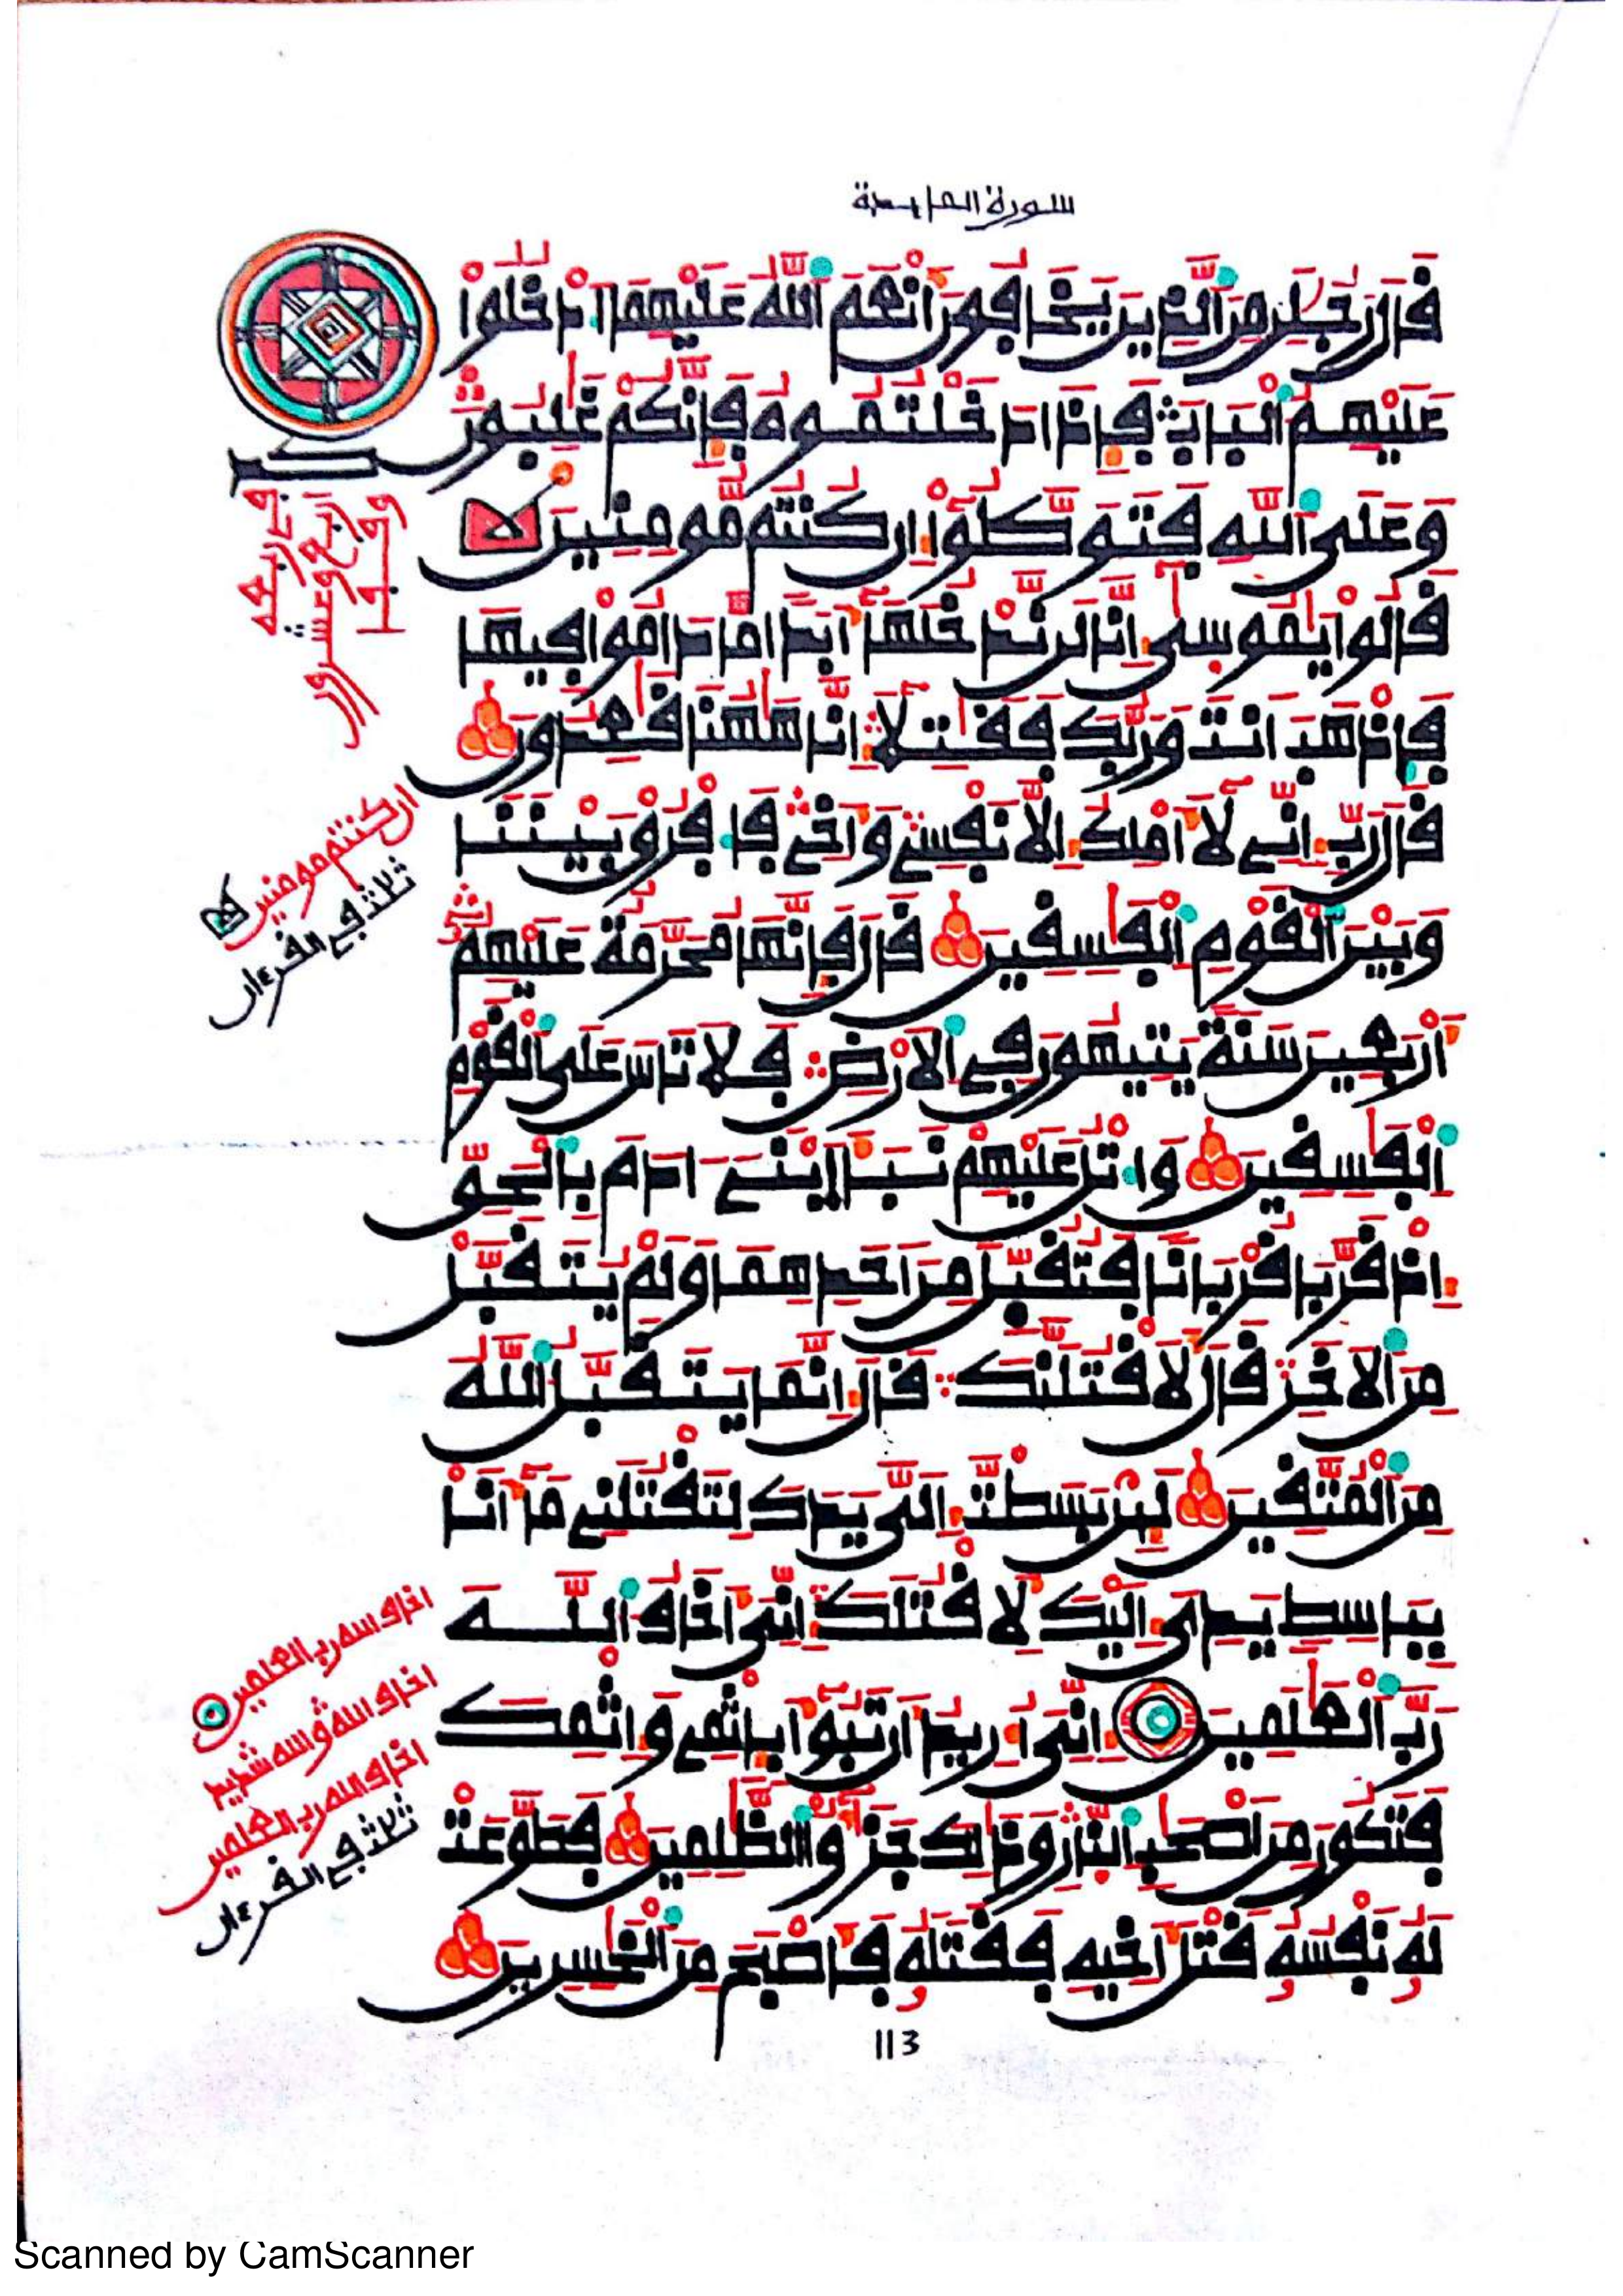 سورة المايدة
قَالَ رَجُلَٰنِ مِنَ اَ۬لذِينَ يَخَافُونَ أَنْعَمَ اَ۬للَّهُ عَلَيْهِمَا اَ۟دْخُلُواْ
عَلَيْهِمُ اُ۬لْبَابَ فَإِذَا دَخَلْتُمُوهُ فَإِنَّكُمْ غَٰلِبُونَ
وَعَلَى اَ۬للَّهِ فَتَوَكَّلُوٓاْ إِن كُنتُم مُّومِنِينَ
قَالُواْ يَٰمُوسَىٰٓ إِنَّا لَن نَّدْخُلَهَآ أَبَداٗ مَّا دَامُواْ فِيهَا
فَاذْهَبَ اَنتَ وَرَبُّكَ فَقَٰتِلَآ إِنَّا هَٰهُنَا قَٰعِدُونَ
قَالَ رَبِّ إِنِّے لَآ أَمْلِكُ إِلَّا نَفْسِے وَأَخِے فَافْرُقْ بَيْنَنَا
وَبَيْنَ اَ۬لْقَوْمِ اِ۬لْفَٰسِقِينَ قَالَ فَإِنَّهَا مُحَرَّمَةٌ عَلَيْهِمُۥٓ
أَرْبَعِينَ سَنَةٗ يَتِيهُونَ فِے اِ۬لَارْضِ فَلَا تَاسَ عَلَى اَ۬لْقَوْمِ
اِ۬لْفَٰسِقِينَ وَاتْلُ عَلَيْهِمْ نَبَأَ اَ۪بْنَےَ ءَادَمَ بِالْحَقِّ
إِذْ قَرَّبَا قُرْبَاناٗ فَتُقُبِّلَ مِنَ اَحَدِهِمَا وَلَمْ يُتَقَبَّلْ
مِنَ اَ۬لَاخَرِ قَالَ لَأَقْتُلَنَّكَ قَالَ إِنَّمَا يَتَقَبَّلُ اُ۬للَّهُ
مِنَ اَ۬لْمُتَّقِينَ لَئِنۢ بَسَطتَ إِلَيَّ يَدَكَ لِتَقْتُلَنِے مَآ أَنَا
بِبَاسِطٖ يَدِيَ إِلَيْكَ لَأَقْتُلَكَ إِنِّيَ أَخَافُ اُ۬للَّهَ
رَبَّ اَ۬لْعَٰلَمِينَ إِنِّيَ أُرِيدُ أَن تَبُوٓأَ بِإِثْمِے وَإِثْمِكَ
فَتَكُونَ مِنَ اَصْحَٰبِ اِ۬لنّ۪ارِ وَذَٰلِكَ جَزَٰٓؤُاْ اُ۬لظَّٰلِمِينَ فَطَوَّعَتْ
لَهُۥ نَفْسُهُۥ قَتْلَ أَخِيهِ فَقَتَلَهُۥ فَأَصْبَحَ مِنَ اَ۬لْخَٰسِرِينَ
ان كنتم مومنين
ثلاث في القرءان
اخاف الله رب العلمين
اخاف الله والله شديد
اخاف الله رب العلمين
ثلاث في القرءان
113
Scanned by CamScanner